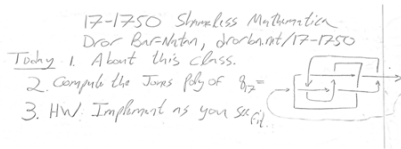 17-1750 Shameless Mathematica
Dror Bar-Natan, drorbn.net/17-1750
Today 1. About this class.
2. Compute the Jones Poly of 8₁₇=
3. HW Implement as you see fit.